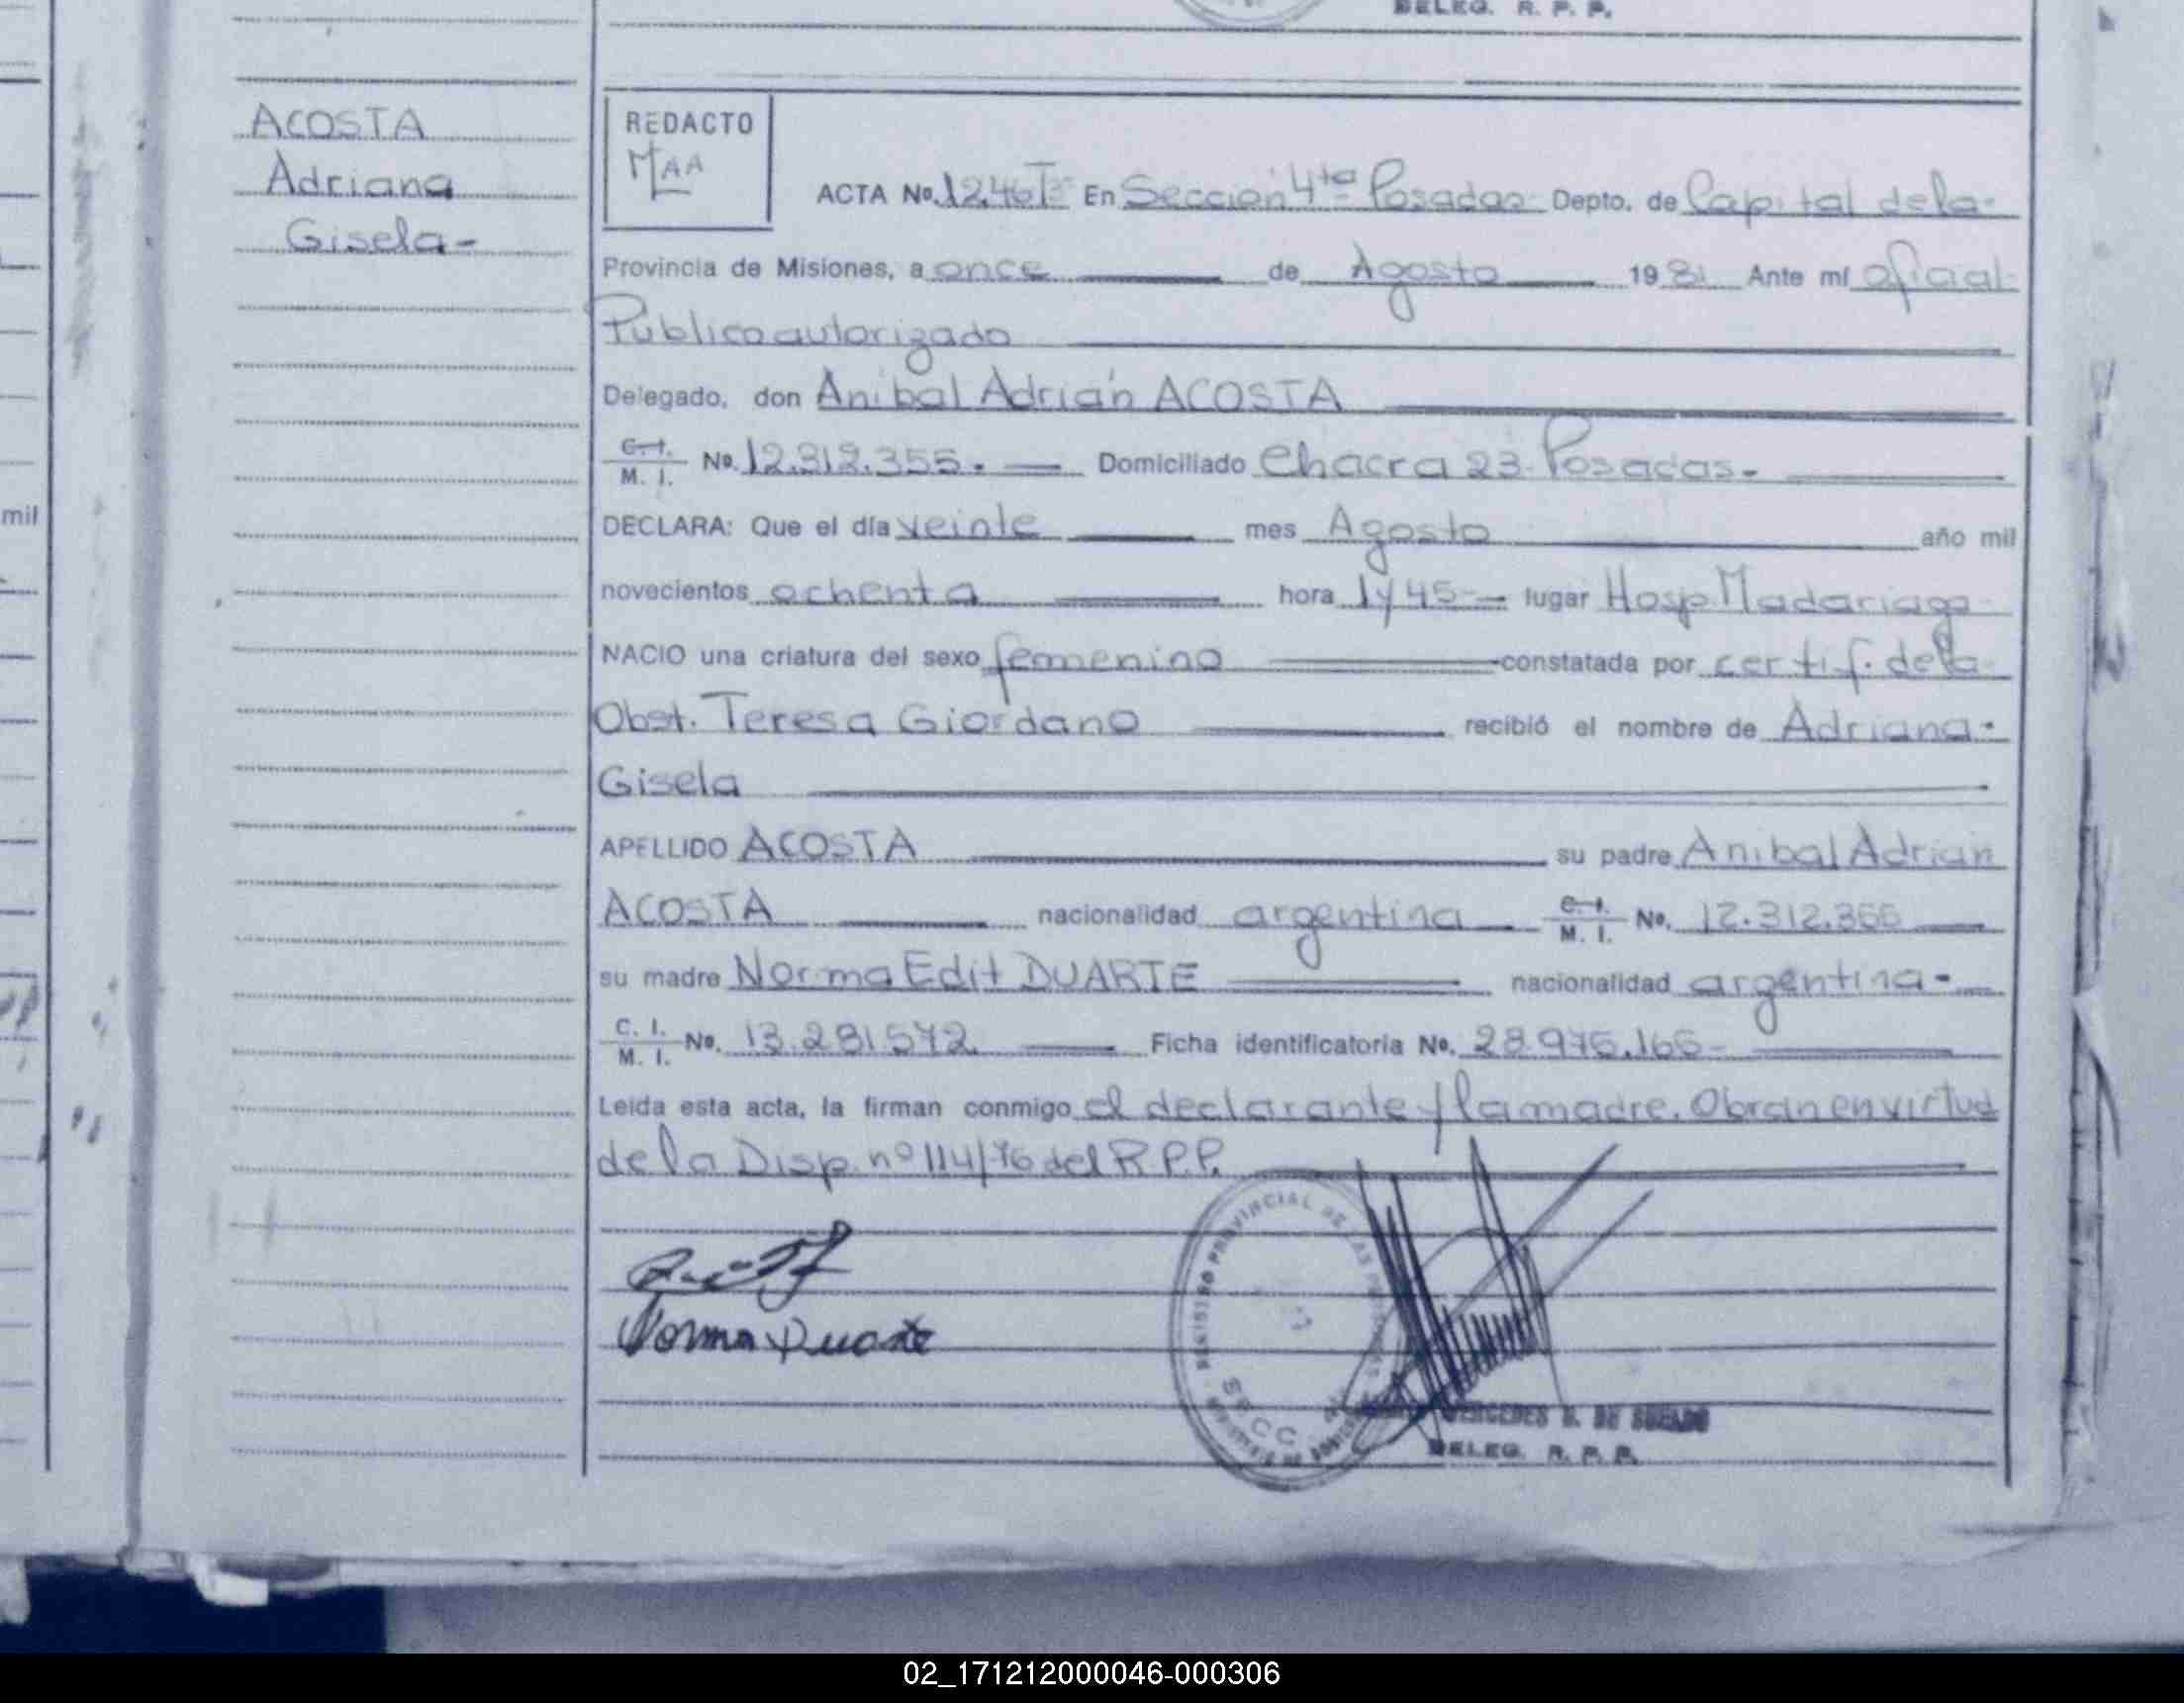 DELEG. R. P. P.
ACOSTA
Adriana
Gisela-
REDACTO
MAA
ACTA Nº 1246Tº En Sección 4ta Posadas Depto. de Capital de la-
Provincia de Misiones, a once de Agosto 1981 Ante mí oficial
Público autorizado
Delegado, don Aníbal Adrián ACOSTA
C.I. M. I. Nº 12.312.355.- Domiciliado Chacra 23-Posadas.-
DECLARA: Que el día veinte mes Agosto año mil
novecientos ochenta hora 1y45- lugar Hosp. Madariaga-
NACIO una criatura del sexo femenino constatada por certif. de la
Obst. Teresa Giordano recibió el nombre de Adriana-
Gisela
APELLIDO ACOSTA su padre Anibal Adrian
ACOSTA nacionalidad argentina C.I. M. I. Nº. 12.312.355
su madre Norma Edit DUARTE nacionalidad argentina-
C. I. M. I. Nº. 13.281572 Ficha identificatoria Nº. 28.976.166-
Leída esta acta, la firman conmigo el declarante y la madre. Obran en virtud
de la Disp. nº 114/76 del R.P.P.
REGISTRO PROVINCIAL DE LAS PERSONAS
SECC
Norma Duarte
MERCEDES DE
DELEG. R. P. P.
mil
02_171212000046-000306